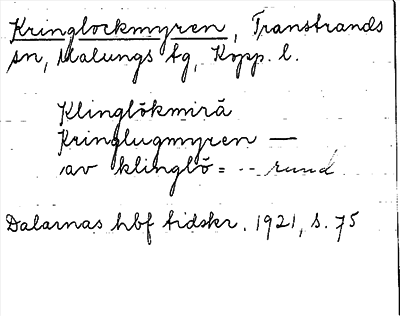 Kringlockmyren, Transtrands
sn, Malungs tg, Kopp. l.
Klinglökmirä
Kringlugmyren —
av klinglö = -- rund
Dalarnas hbf tidskr. 1921, s. 75